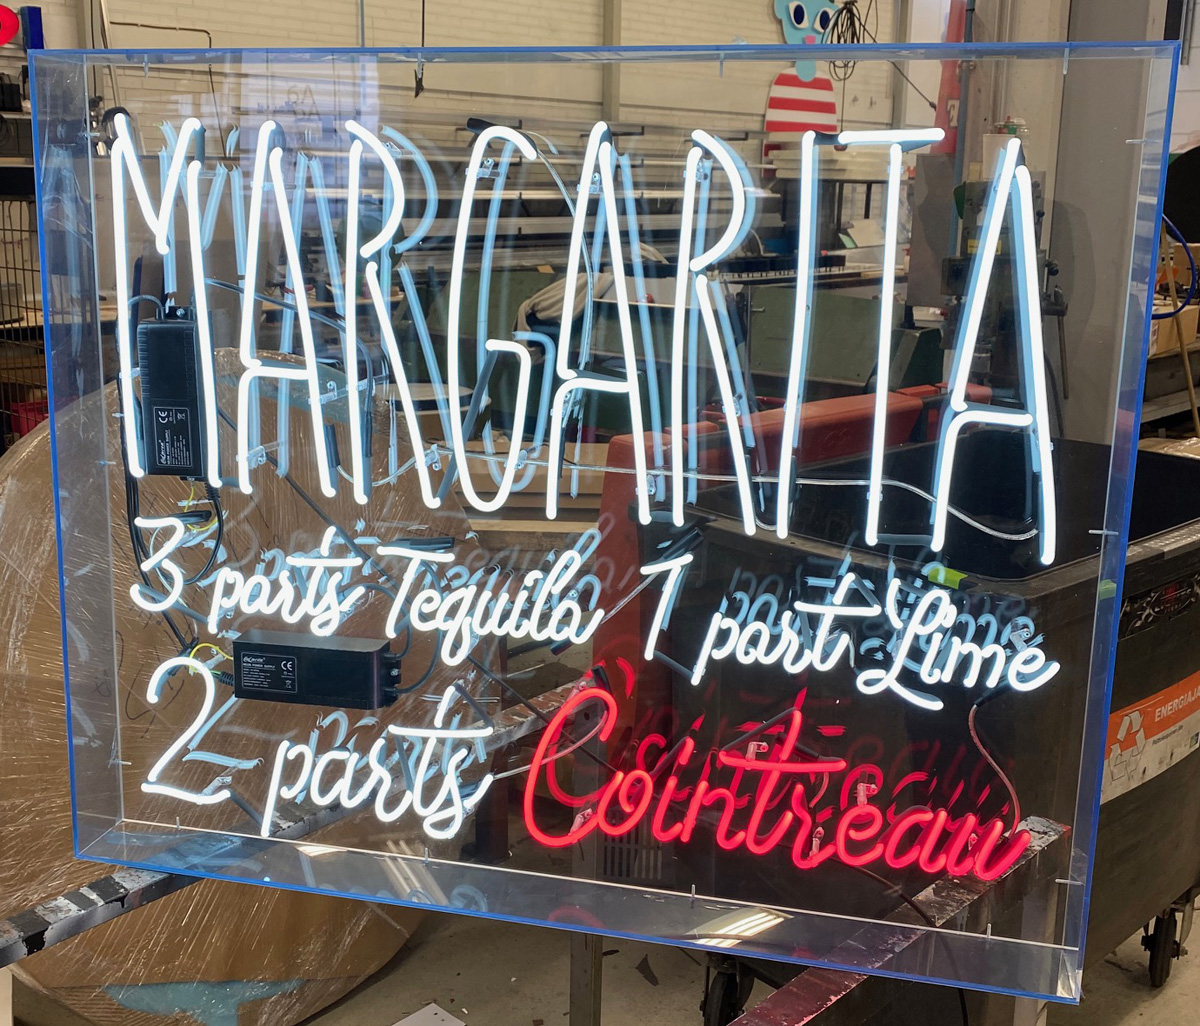 MARGARITA
3 parts Tequila 1 part Lime
2 parts Cointreau
CE
CE
ENERGIA